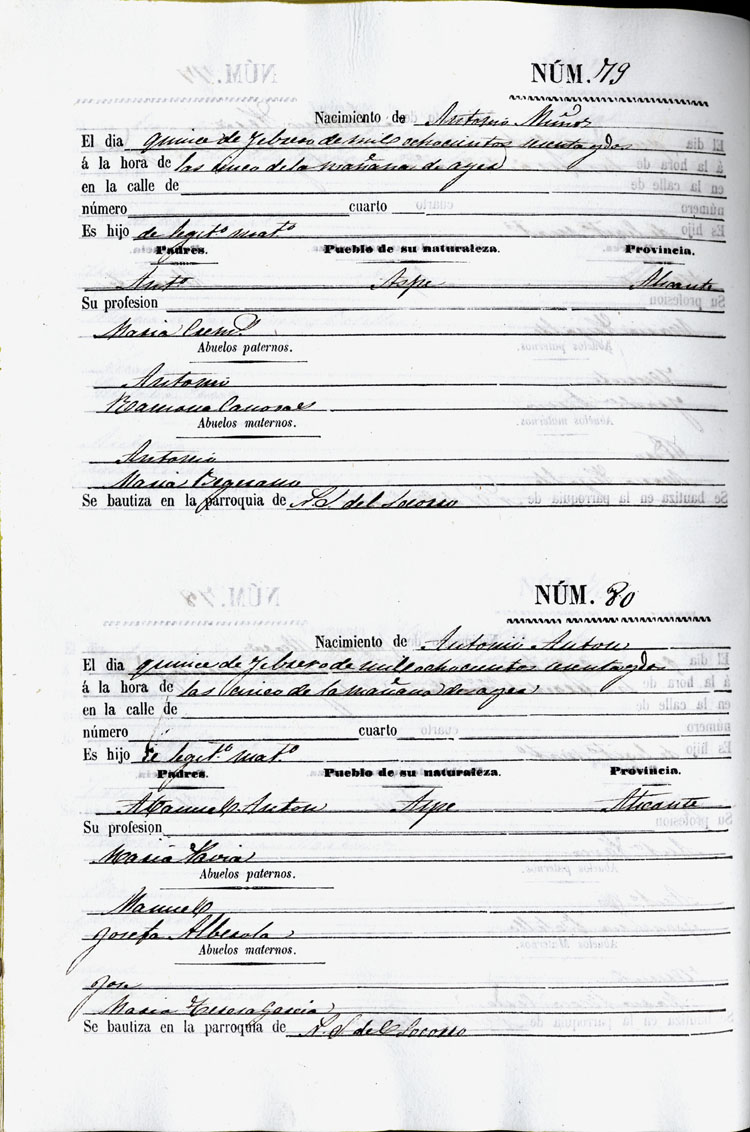 NÚM. 79
Nacimiento de Antonio Muñoz
El dia quince de Febrero de mil ochocientos cuarenta y dos
á la hora de las cinco de la mañana de ayer
en la calle de
número cuarto
Es hijo de legit.º mat.º
Padres. Pueblo de su naturaleza. Provincia.
Ant.º Aspe Alicante
Su profesion
Maria
Abuelos paternos.
Antonio
Ramona
Abuelos maternos.
Antonio
Maria
Se bautiza en la parroquia de N. S. del Socorro
NÚM. 80
Nacimiento de Antonio Anton
El dia quince de Febrero de mil ochocientos cuarenta y dos
á la hora de las cinco de la mañana de ayer
en la calle de
número cuarto
Es hijo de legit.º mat.º
Padres. Pueblo de su naturaleza. Provincia.
Manuel Anton Aspe Alicante
Su profesion
Maria
Abuelos paternos.
Manuel
Josefa Alberola
Abuelos maternos.
Jose
Maria Teresa Garcia
Se bautiza en la parroquia de N. S. del Socorro